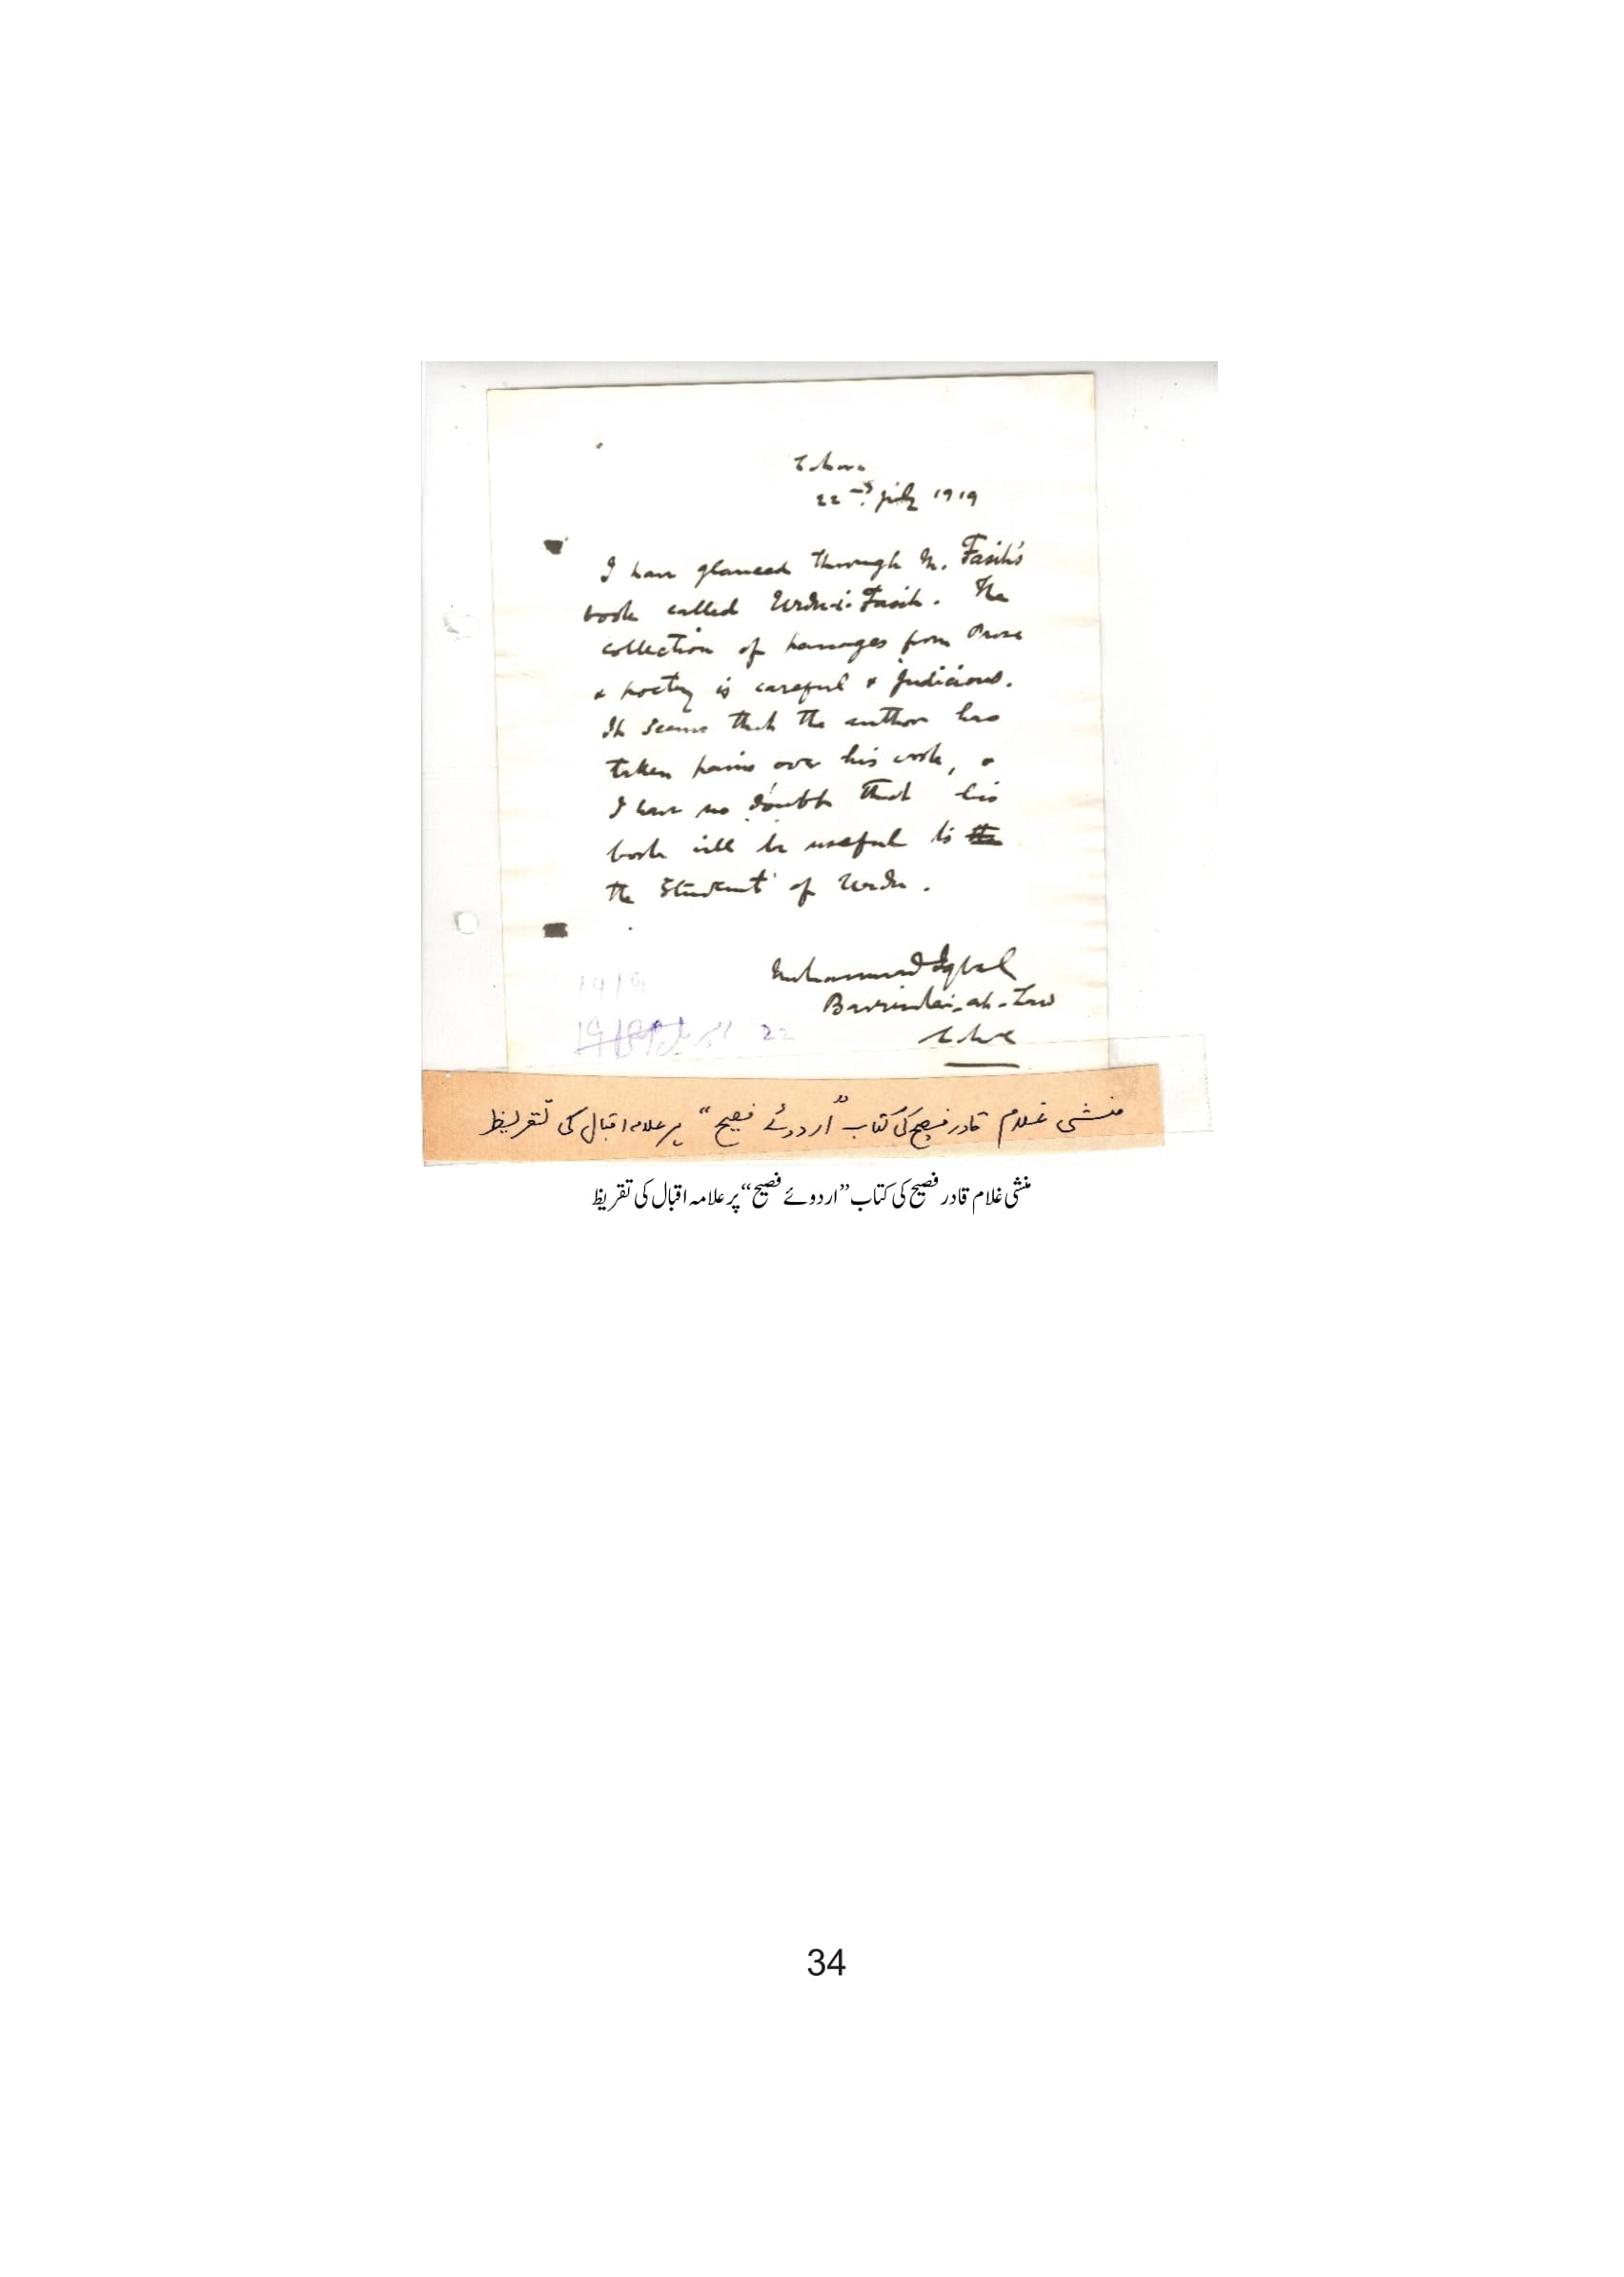 Lahore
22nd July 1919
I have glanced through M. Fasih's
book called Urdu-i-Fasih. The
collection of passages from Prose
& poetry is careful & judicious.
It seems that the author has
taken pains over his work, &
I have no doubt that his
book will be useful to the
the student of Urdu.
Muhammad Iqbal
Barrister-at-Law
Lahore
1919
22
منشی غلام قادر فصیح کی کتاب "اردوئے فصیح" پر علامہ اقبال کی تقریظ
منشی غلام قادر فصیح کی کتاب ’’اردوئے فصیح‘‘ پر علامہ اقبال کی تقریظ
34